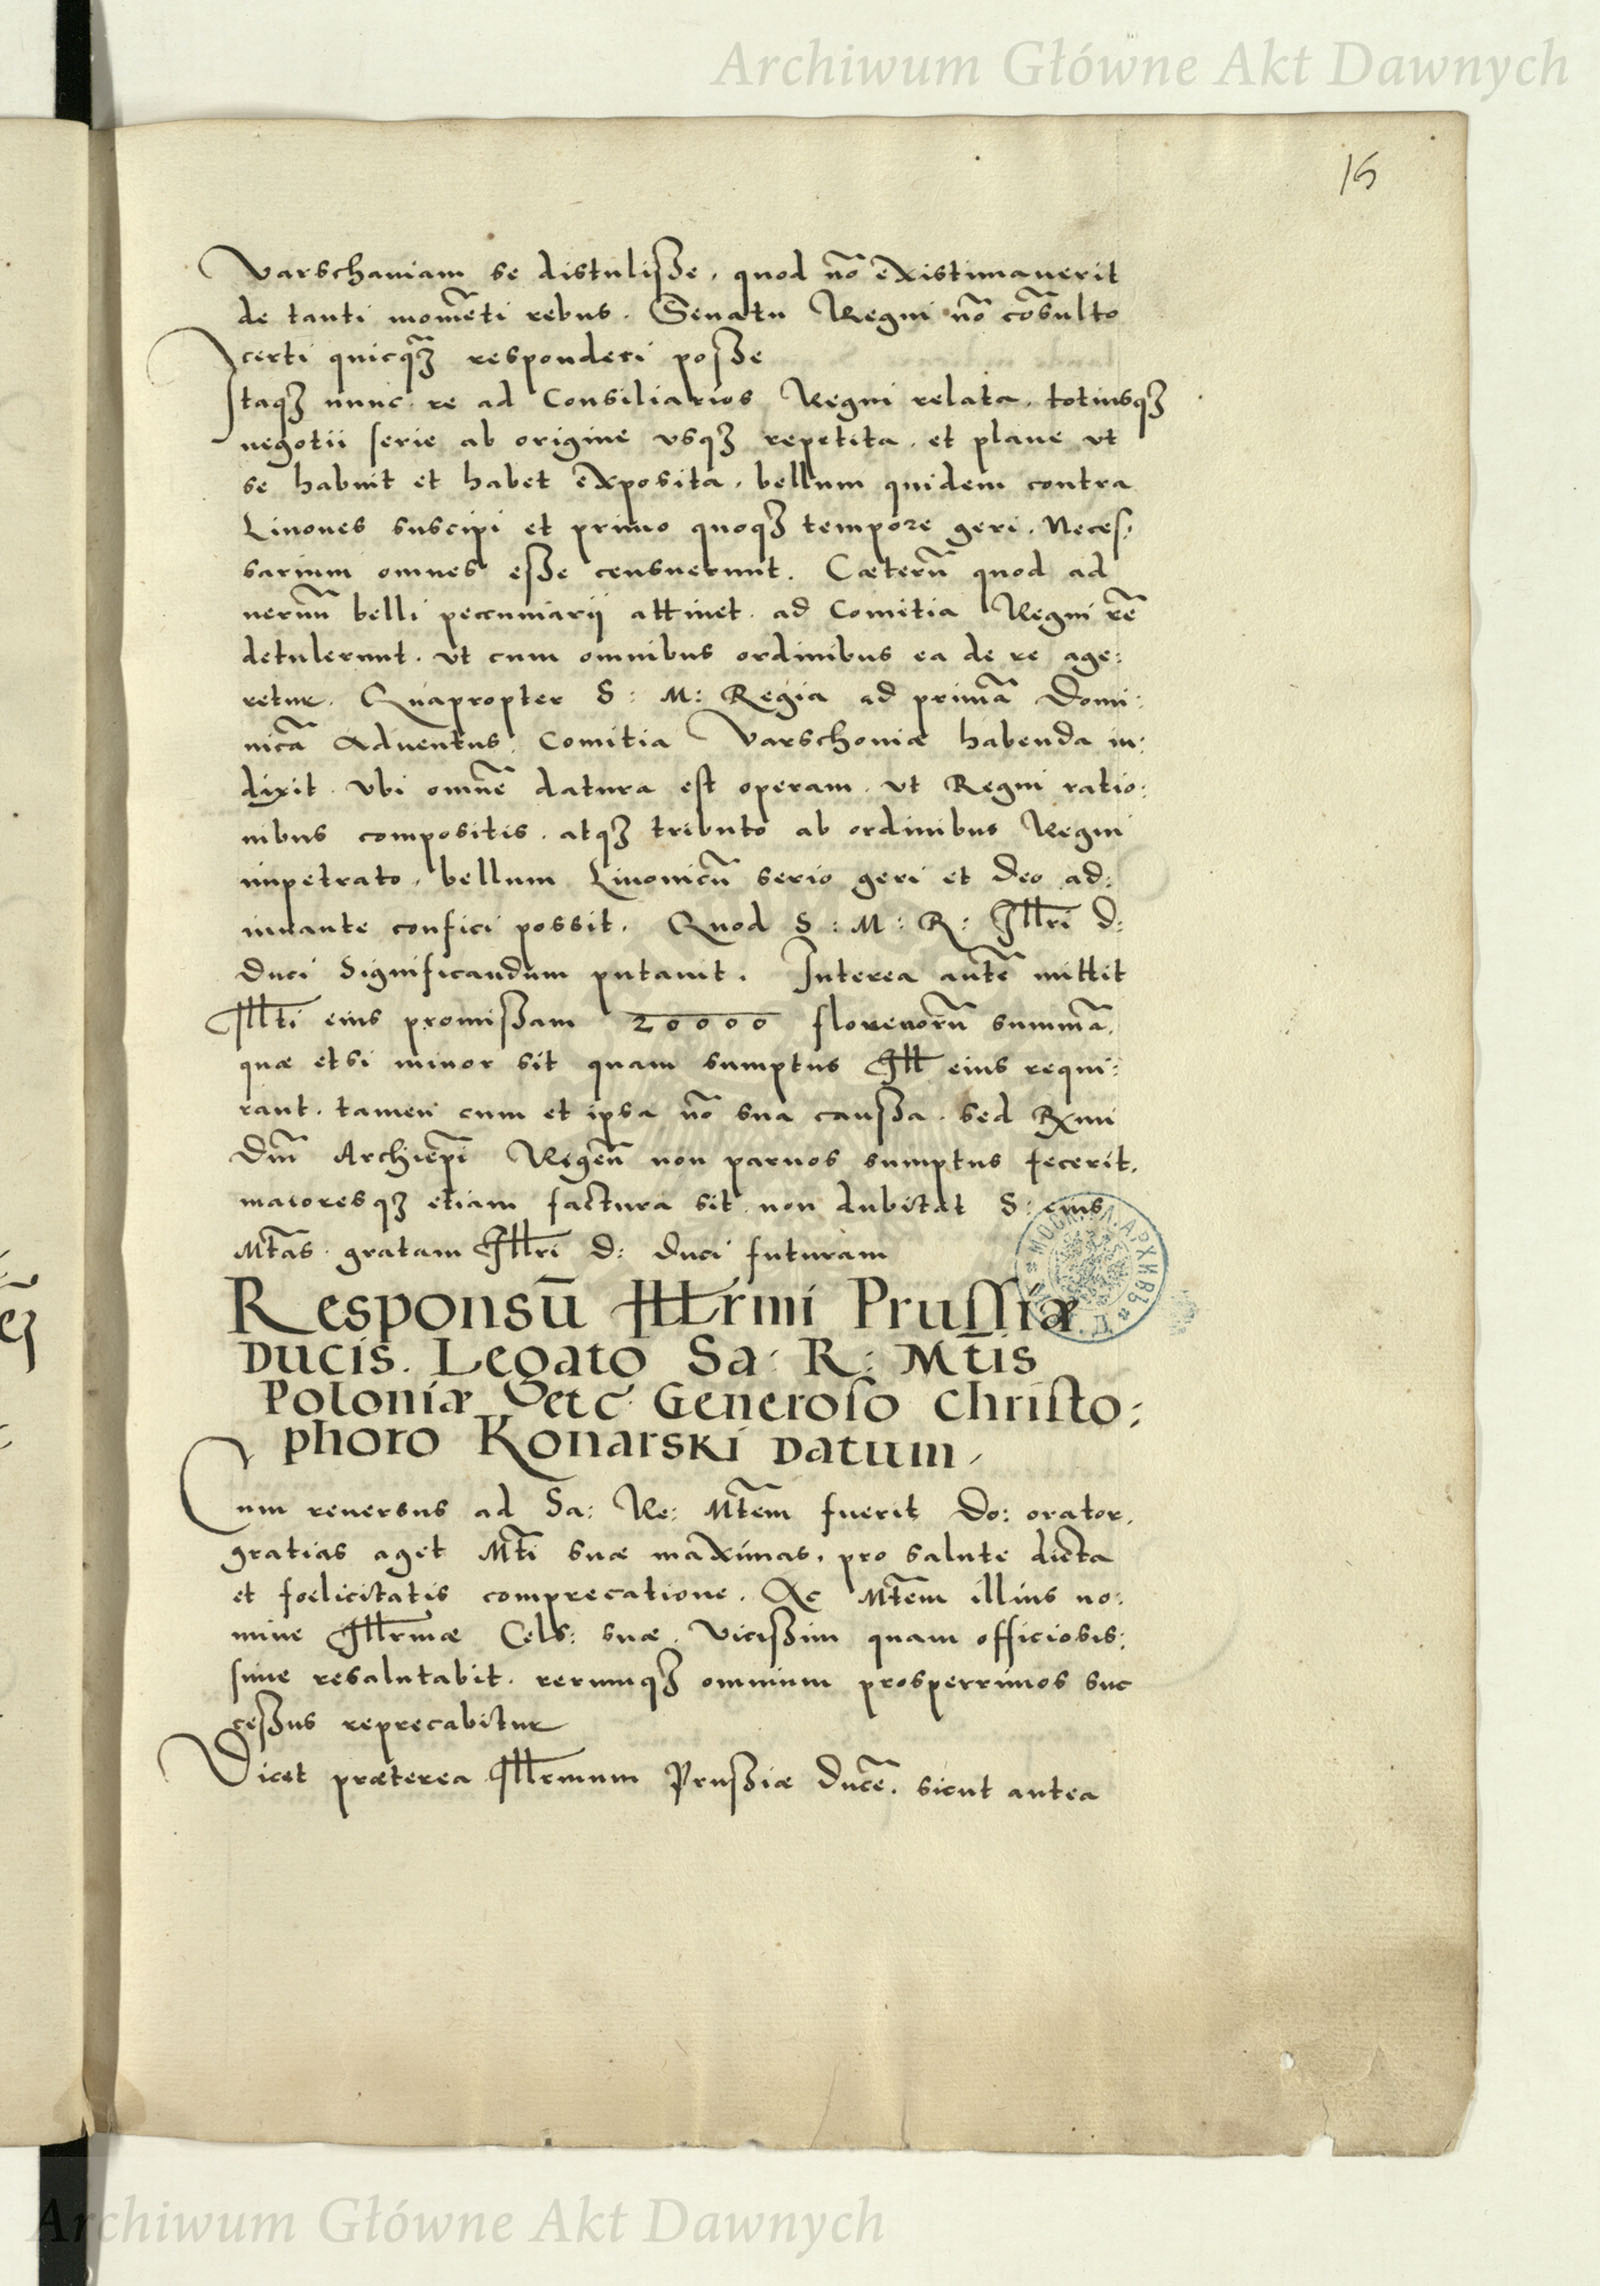 Archiwum Główne Akt Dawnych
15
Varschaniam se distulisse, quod nō existimauerit
de tanti momēti rebus. Senatu Regni nō cōsulto
certi quicq̃ꝫ responderi posse
Itaqꝫ nunc re ad Consiliarios Regni relata, totiusqꝫ
negotii serie ab origine vsqꝫ repetita, et plane vt
se habuit et habet exposita, bellum quidem contra
Liuones suscipi et primo quoqꝫ tempore geri, Neces:
sarium omnes esse censuerunt. Cæterū quod ad
neruū belli pecuniarij attinet, ad Comitia Regni rē
detulerunt, vt cum omnibus ordinibus ea de re age:
retur. Quapropter S: M: Regia ad primā Domi:
nicā Aduentus, Comitia Varschoniæ habenda in:
dixit. Vbi omnē datura est operam, vt Regni ratio:
nibus compositis, atqꝫ tributo ab ordinibus Regni
impetrato, bellum Liuonicū serio geri et Deo ad:
iuuante confici possit. Quod S: M: R: Illri d:
Duci Significandum putauit. Interea autē mittit
Illti eius promissam 20000 florenorū summā,
quæ etsi minor sit quam sumptus Ill eius requi:
rant, tamen cum et ipsa nō sua caussa, sed Rxmi
Dm̄ Archiepi Rigen̄ non paruos sumptus fecerit,
maioresqꝫ etiam factura sit, non dubitat S: eius
Mtas gratam Illri D: Duci futuram
Responsū Illrmi Prussiæ
Ducis. Legato Sa: R: Mtis
Poloniæ etc Generoso Christo:
phoro Konarski Datum,
Cum reuersus ad Sa: Re: Mtem fuerit Do: orator,
gratias aget Mti suæ maximas, pro salute dicta
et foelicitatis comprecatione. Ac Mtem illius no:
mine Illrmæ Cels: suæ, vicissim quam officiosis:
sime resalutabit, rerumqꝫ omnium prosperrimos suc
cessus reprecabitur
Dicet præterea Illrmum Prussiæ Ducē, sicut antea
Archiwum Główne Akt Dawnych